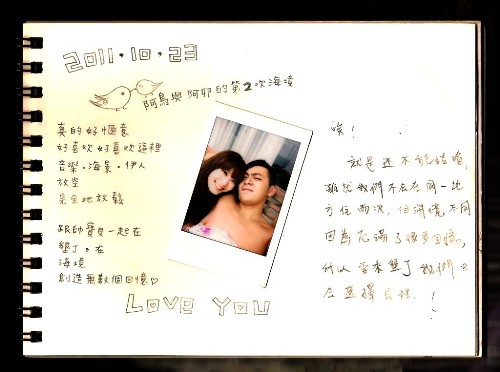 2011.10.23
阿鳥與阿卯的第2次海境
真的好愜意
好喜歡好喜歡這裡
音樂.海景.伊人
放空
完全地放鬆
跟帥寶貝一起在
墾丁。在
海境
創造無數個回憶♡
LOVE YOU
唉！
就是
我們不會在同一地
方住兩次,但海境不同
因為充滿了很多回憶,
所以 墾丁 我們
會選擇